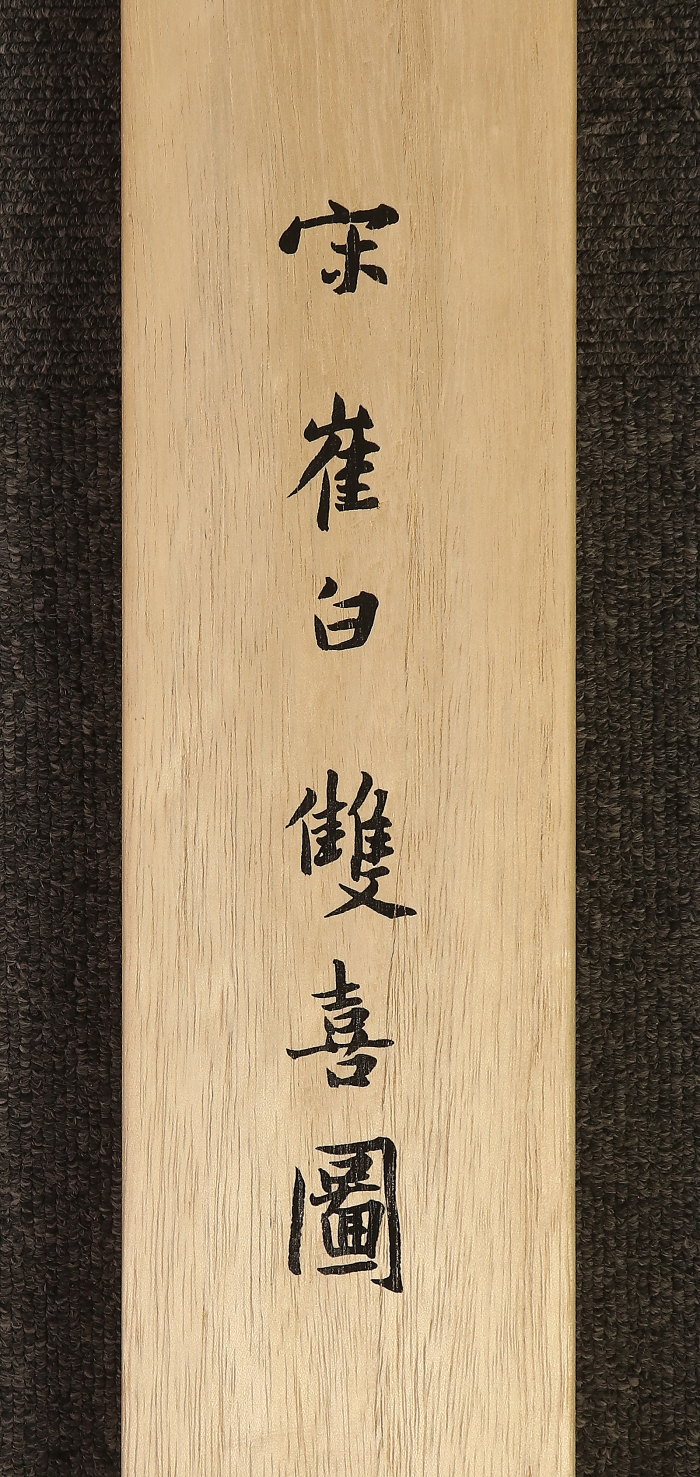 宋崔白雙喜圖